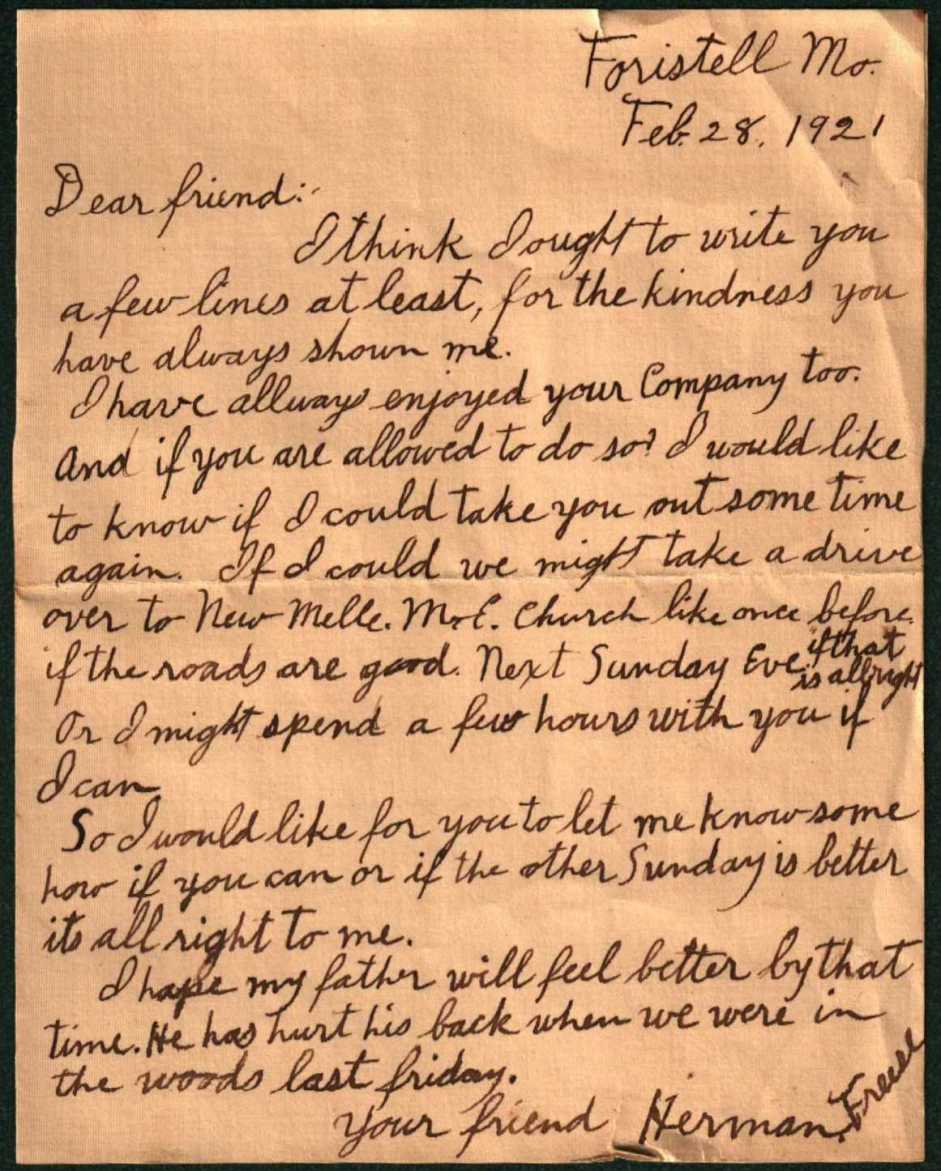 Foristell Mo.
Feb. 28, 1921
Dear friend:-
I think I ought to write you
a few lines at least, for the kindness you
have always shown me.
I have allways enjoyed your Company too.
And if you are allowed to do so? I would like
to know if I could take you out some time
again. If I could we might take a drive
over to New Melle. M.E. Church like once before.
if the roads are good. Next Sunday Eve. if that
is allright
Or I might spend a few hours with you if
I can
So I would like for you to let me know some
how if you can or if the other Sunday is better
its all right to me.
I hope my father will feel better by that
time. He has hurt his back when we were in
the woods last friday.
Your friend Herman. Freese